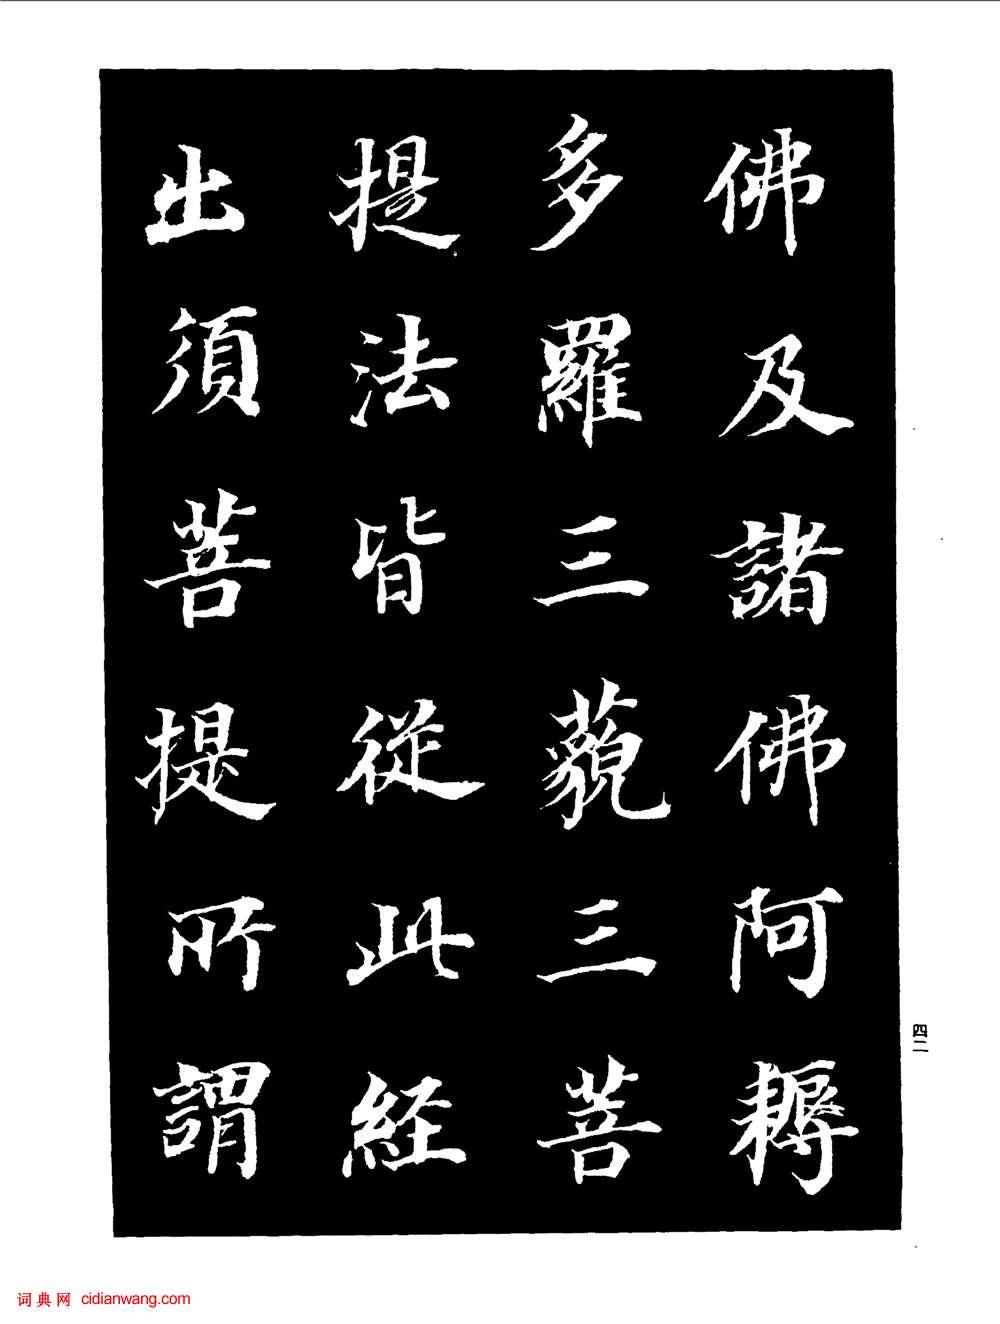 佛及諸佛阿耨
多羅三藐三菩
提法皆從此経
出須菩提所謂
四二
词典网 cidianwang.com